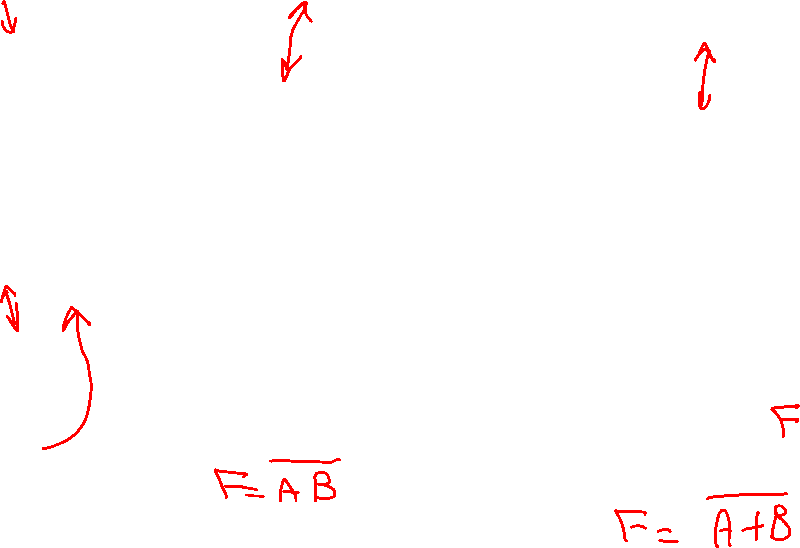 F
F = \overline{AB}
F = \overline{A+B}